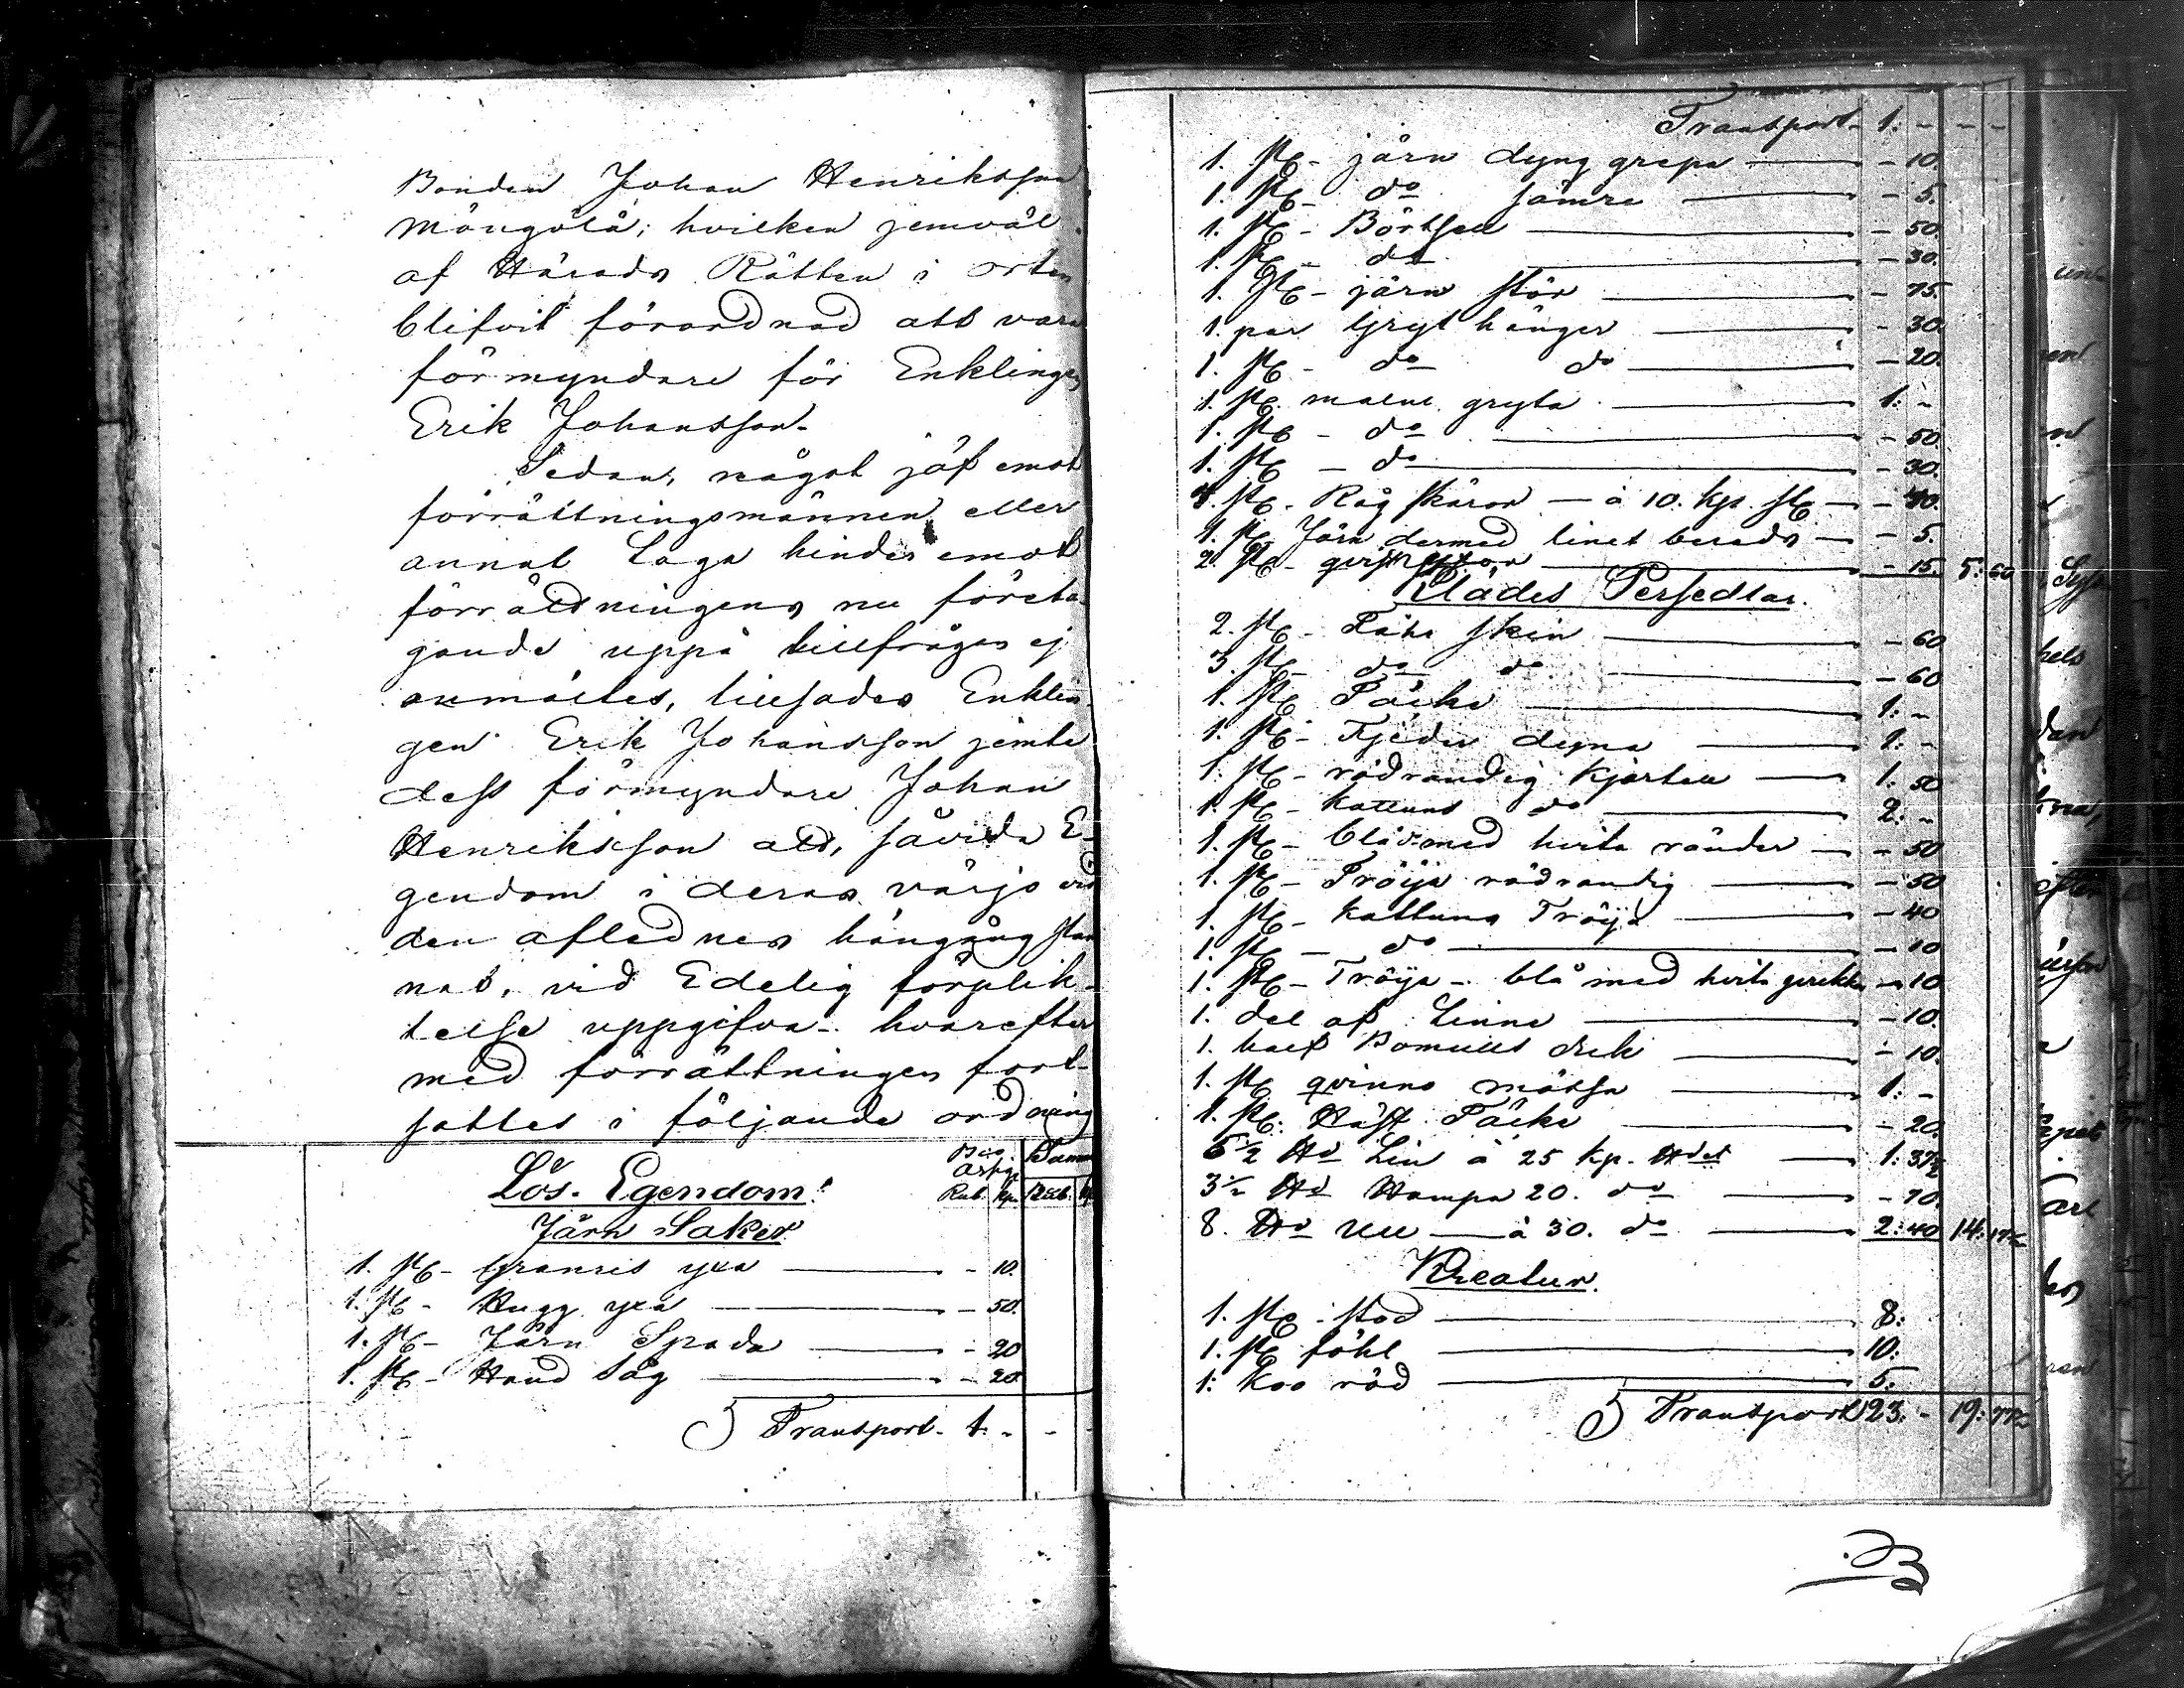 Bonden Johan Henriksson
Mångölä; hvilken jemväl
af Härads Rätten i orten
blifvit förordnad att vara
förmyndare för Enklingen
Erik Johansson.
Sedan, något jäf emot
förrättningsmännen eller
annat Laga hinder emot
förrättningens nu företa-
gande uppå tillfrågan ej
anmältes, tillsades Enklin-
gen Erik Johansson jemte
dess förmyndare Johan
Henriksson att, såvida E-
gendom i deras värjo vid
den aflednes hängång stan
nat, vid Edelig förplik-
telse uppgifva. hvarefter
med förrättningen fort-
sattes i följande ordning
Summ
Rub. kp. Rub. k
Lös. Egendom:
Järn Saker
1. st - Granris yxa - 10.
1. st - Hugg yxa - 50.
1. st - Järn Spada - 20
1. st - Hand såg - 20
Transport. 1. - -
Transport - 1: - - -
1. st - järn dyng grepa - 10.
1. st - do sämre - 5.
1. st - - 50.
1. st - do - 30.
1. st - järn stör - 75.
1. par Gryt hänger - 30.
1. st - do do - 20.
1. st. malm gryta 1: -
1. st - do - 50
1. st - do - 30.
4. st - Råg skäror - à 10. kp. st - 40.
1. st - Järn dermed linet bereds - 5.
2. st - - 15. 5: 60
Klädes Persedlar.
2. st - skin - 60
3. st - do do - 60
1. st Täcke 1: -
1. st - Fjäder dyna 1: -
1. st - rödrandig kjortel 1: 50
1. st - Kattuns do 2: -
1. st - blå med hvita ränder - 50
1. st - Tröija rödrandig - 50
1. st - kattuns Tröija - 40
1. st - do - 10
1. st - Tröija - blå med hvita - 10
1. del af Linne - 10.
1. half Bomulls duk - 10.
1. st qvinno mössa 1: -
1. st: Häst Täcke - 20.
5½ ℔ Lin à 25 kp. ℔det 1: 37½
3½ ℔ Hampa 20. do - 70.
8. ℔ Ull - à 30. do 2: 40 14: 17½
Kreatur.
1. st - stod 8:
1. st föhl 10:
1: Koo röd 5:
Transport 23: - 19: 77½